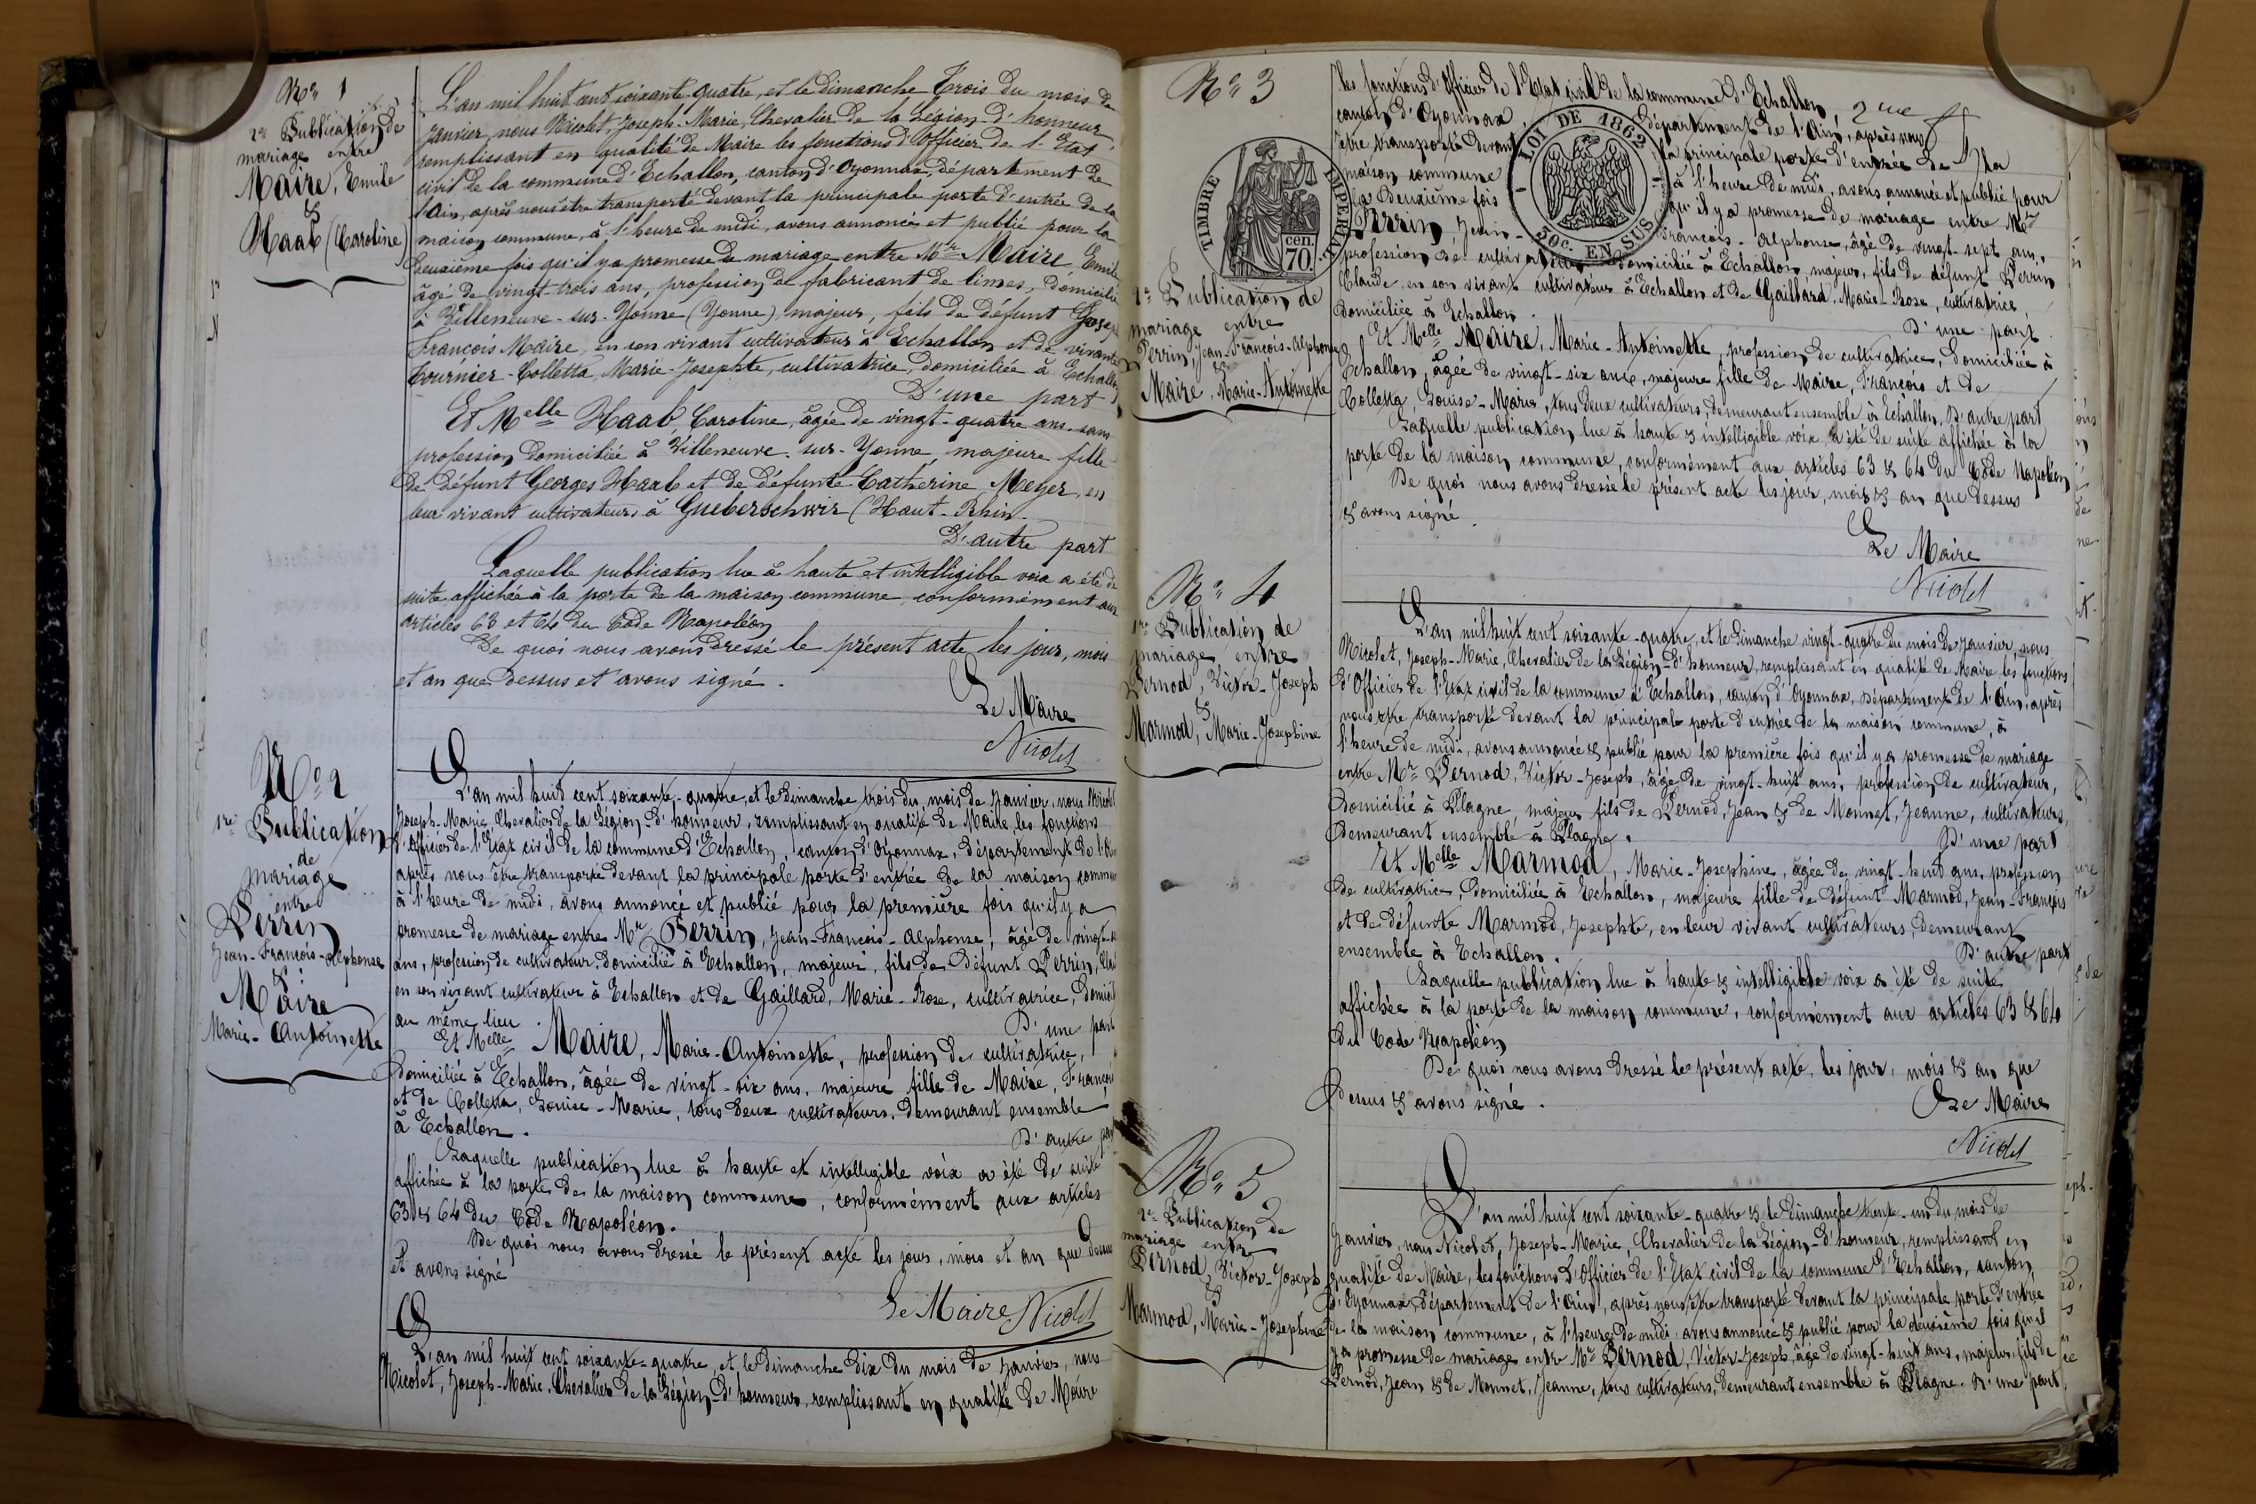 N° 1
2e Publication de
mariage entre
Maire, Emile
&
Haab (Caroline)
L'an mil huit cent soixante-quatre, et le dimanche Trois du mois de
Janvier, nous Nicolet, Joseph-Marie, Chevalier de la Légion d'honneur,
remplissant en qualité de Maire les fonctions d'Officier de l'Etat
civil de la commune d'Echallon, canton d'Oyonnax, département de
l'Ain, après nous être transporté devant la principale porte d'entrée de la
maison commune, à l'heure de midi, avons annoncé et publié pour la
deuxième fois qu'il y a promesse de mariage entre Mr Maire Emile
âgé de vingt-trois ans, profession de fabricant de limes, domicilié
à Villeneuve-sur-Yonne (Yonne) majeur, fils de défunt Josep
François Maire, en son vivant cultivateur à Echallon et de vivante
Tournier-Colletta, Marie-Josephte, cultivatrice, domiciliée à Echallon
D'une part
Et Melle Haab, Caroline, âgée de vingt-quatre ans, sans
profession, domiciliée à Villeneuve-sur-Yonne, majeure fille
de défunt Georges Haab et de défunte Catherine Meyer, en
leur vivant cultivateurs à Gueberschwir (Haut-Rhin
D'autre part
Laquelle publication lue à haute et intelligible voix a été de
suite affichée à la porte de la maison commune, conformément aux
articles 63 et 64 du Code Napoléon
De quoi nous avons dressé le présent acte les jour, mois
et an que dessus et avons signé.
Le Maire
Nicolet
N° 2
1re Publication
de
mariage
entre
Perrin
Jean-François-Alphonse
&
Maire
Marie-Antoinette
L'an mil huit cent soixante-quatre, et le dimanche trois du mois de Janvier, nous Nicolet
Joseph-Marie, Chevalier de la Légion-d'honneur, remplissant en qualité de Maire, les fonctions
d'Officier de l'Etat civil de la commune d'Echallon, canton d'Oyonnax, département de l'Ain
après nous être transporté devant la principale porte d'entrée de la maison commune
à l'heure de midi, avons annoncé et publié pour la première fois qu'il y a
promesse de mariage entre Mr Perrin, Jean-François-Alphonse, âgé de vingt-
ans, profession de cultivateur, domicilié à Echallon, majeur, fils de défunt Perrin, Clau
en son vivant cultivateur à Echallon et de Gaillard, Marie-Rose, cultivatrice, Domici
au même lieu.
D'une part
Et Melle Maire, Marie-Antoinette, profession de cultivatrice,
domiciliée à Echallon, âgée de vingt-six ans, majeure fille de Maire, François
et de Colletta, Louise-Marie, tous deux cultivateurs, demeurant ensemble
à Echallon.
D'autre part
Laquelle publication lue à haute et intelligible voix a été de suite
affichée à la porte de la maison commune, conformément aux articles
63 & 64 du Code Napoléon.
De quoi nous avons dressé le présent acte les jour, mois et an que dessus
et avons signé
Le Maire Nicolet
L'an mil huit cent soixante-quatre, et le dimanche dix du mois de Janvier, nous
Nicolet, Joseph-Marie, Chevalier de la Légion-d'honneur, remplissant en qualité de Maire
N° 3
2e Publication de
mariage entre
Perrin, Jean-François-Alphonse
&
Maire, Marie-Antoinette
TIMBRE IMPERIAL
cen.
70.
LOI DE 1862
50c. EN SUS
2me
les fonctions d'Officier de l'Etat civil de la commune d'Echallon
canton d'Oyonnax, département de l'Ain, après nous
être transporté devant la principale porte d'entrée de la
maison commune à l'heure de midi, avons annoncé et publié pour
la deuxième fois qu'il y a promesse de mariage entre Mr
Perrin, Jean-François-Alphonse, âgé de vingt-sept ans,
profession de cultivateur domicilié à Echallon, majeur, fils de défunt Perrin
Claude, en son vivant cultivateur à Echallon et de Gaillard, Marie-Rose, cultivatrice,
domiciliée à Echallon.
D'une part
Et Melle Maire, Marie-Antoinette, profession de cultivatrice, domiciliée à
Echallon, âgée de vingt-six ans, majeure fille de Maire, François et de
Colletta, Louise-Marie, tous deux cultivateurs, demeurant ensemble à Echallon. D'autre part
Laquelle publication lue à haute & intelligible voix a été de suite affichée à la
porte de la maison commune, conformément aux articles 63 & 64 du Code Napoléon
De quoi nous avons dressé le présent acte les jour, mois & an que dessus
& avons signé.
Le Maire
Nicolet
N° 4
1re Publication de
mariage entre
Pernod, Victor-Joseph
&
Marmod, Marie-Josephine
L'an mil huit cent soixante-quatre, et le dimanche vingt-quatre du mois de Janvier, nous
Nicolet, Joseph-Marie, Chevalier de la Légion-d'honneur, remplissant en qualité de Maire les fonctions
d'Officier de l'Etat civil de la commune d'Echallon, canton d'Oyonnax, département de l'Ain, après
nous être transporté devant la principale porte d'entrée de la maison commune, à
l'heure de midi, avons annoncé & publié pour la première fois qu'il y a promesse de mariage
entre Mr Pernod, Victor-Joseph, âgé de vingt-huit ans, profession de cultivateur,
domicilié à Plagne, majeur fils de Pernod, Jean & de Monnet, Jeanne, cultivateurs,
demeurant ensemble à Plagne.
D'une part
Et Melle Marmod, Marie-Josephine, âgée de vingt-huit ans, profession
de cultivatrice, domiciliée à Echallon, majeure fille de défunt Marmod, Jean-François
et de défunte Marmod, Josephte, en leur vivant cultivateurs, demeurant
ensemble à Echallon.
D'autre part
Laquelle publication lue à haute & intelligible voix a été de suite
affichée à la porte de la maison commune, conformément aux articles 63 & 64
du Code Napoléon
De quoi nous avons dressé le présent acte, les jour, mois & an que
dessus & avons signé.
Le Maire
Nicolet
N° 5
2e Publication de
mariage entre
Pernod, Victor-Joseph
&
Marmod, Marie-Josephine
L'an mil huit cent soixante-quatre & le dimanche trente-un du mois de
Janvier, nous Nicolet, Joseph-Marie, Chevalier de la Légion-d'honneur, remplissant en
qualité de Maire, les fonctions d'Officier de l'Etat civil de la commune d'Echallon, canton
d'Oyonnax, département de l'Ain, après nous être transporté devant la principale porte d'entrée
de la maison commune, à l'heure de midi avons annoncé & publié pour la deuxième fois qu'il
y a promesse de mariage entre Mr Pernod, Victor-Joseph, âgé de vingt-huit ans, majeur, fils de
Pernod, Jean & de Monnet, Jeanne, tous cultivateurs, demeurant ensemble à Plagne. D'une part